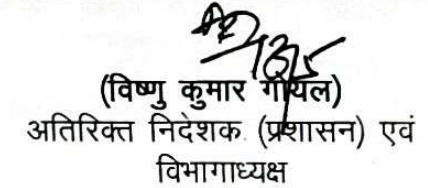 (विष्णु कुमार गोयल)
अतिरिक्त निदेशक (प्रशासन) एवं
विभागाध्यक्ष